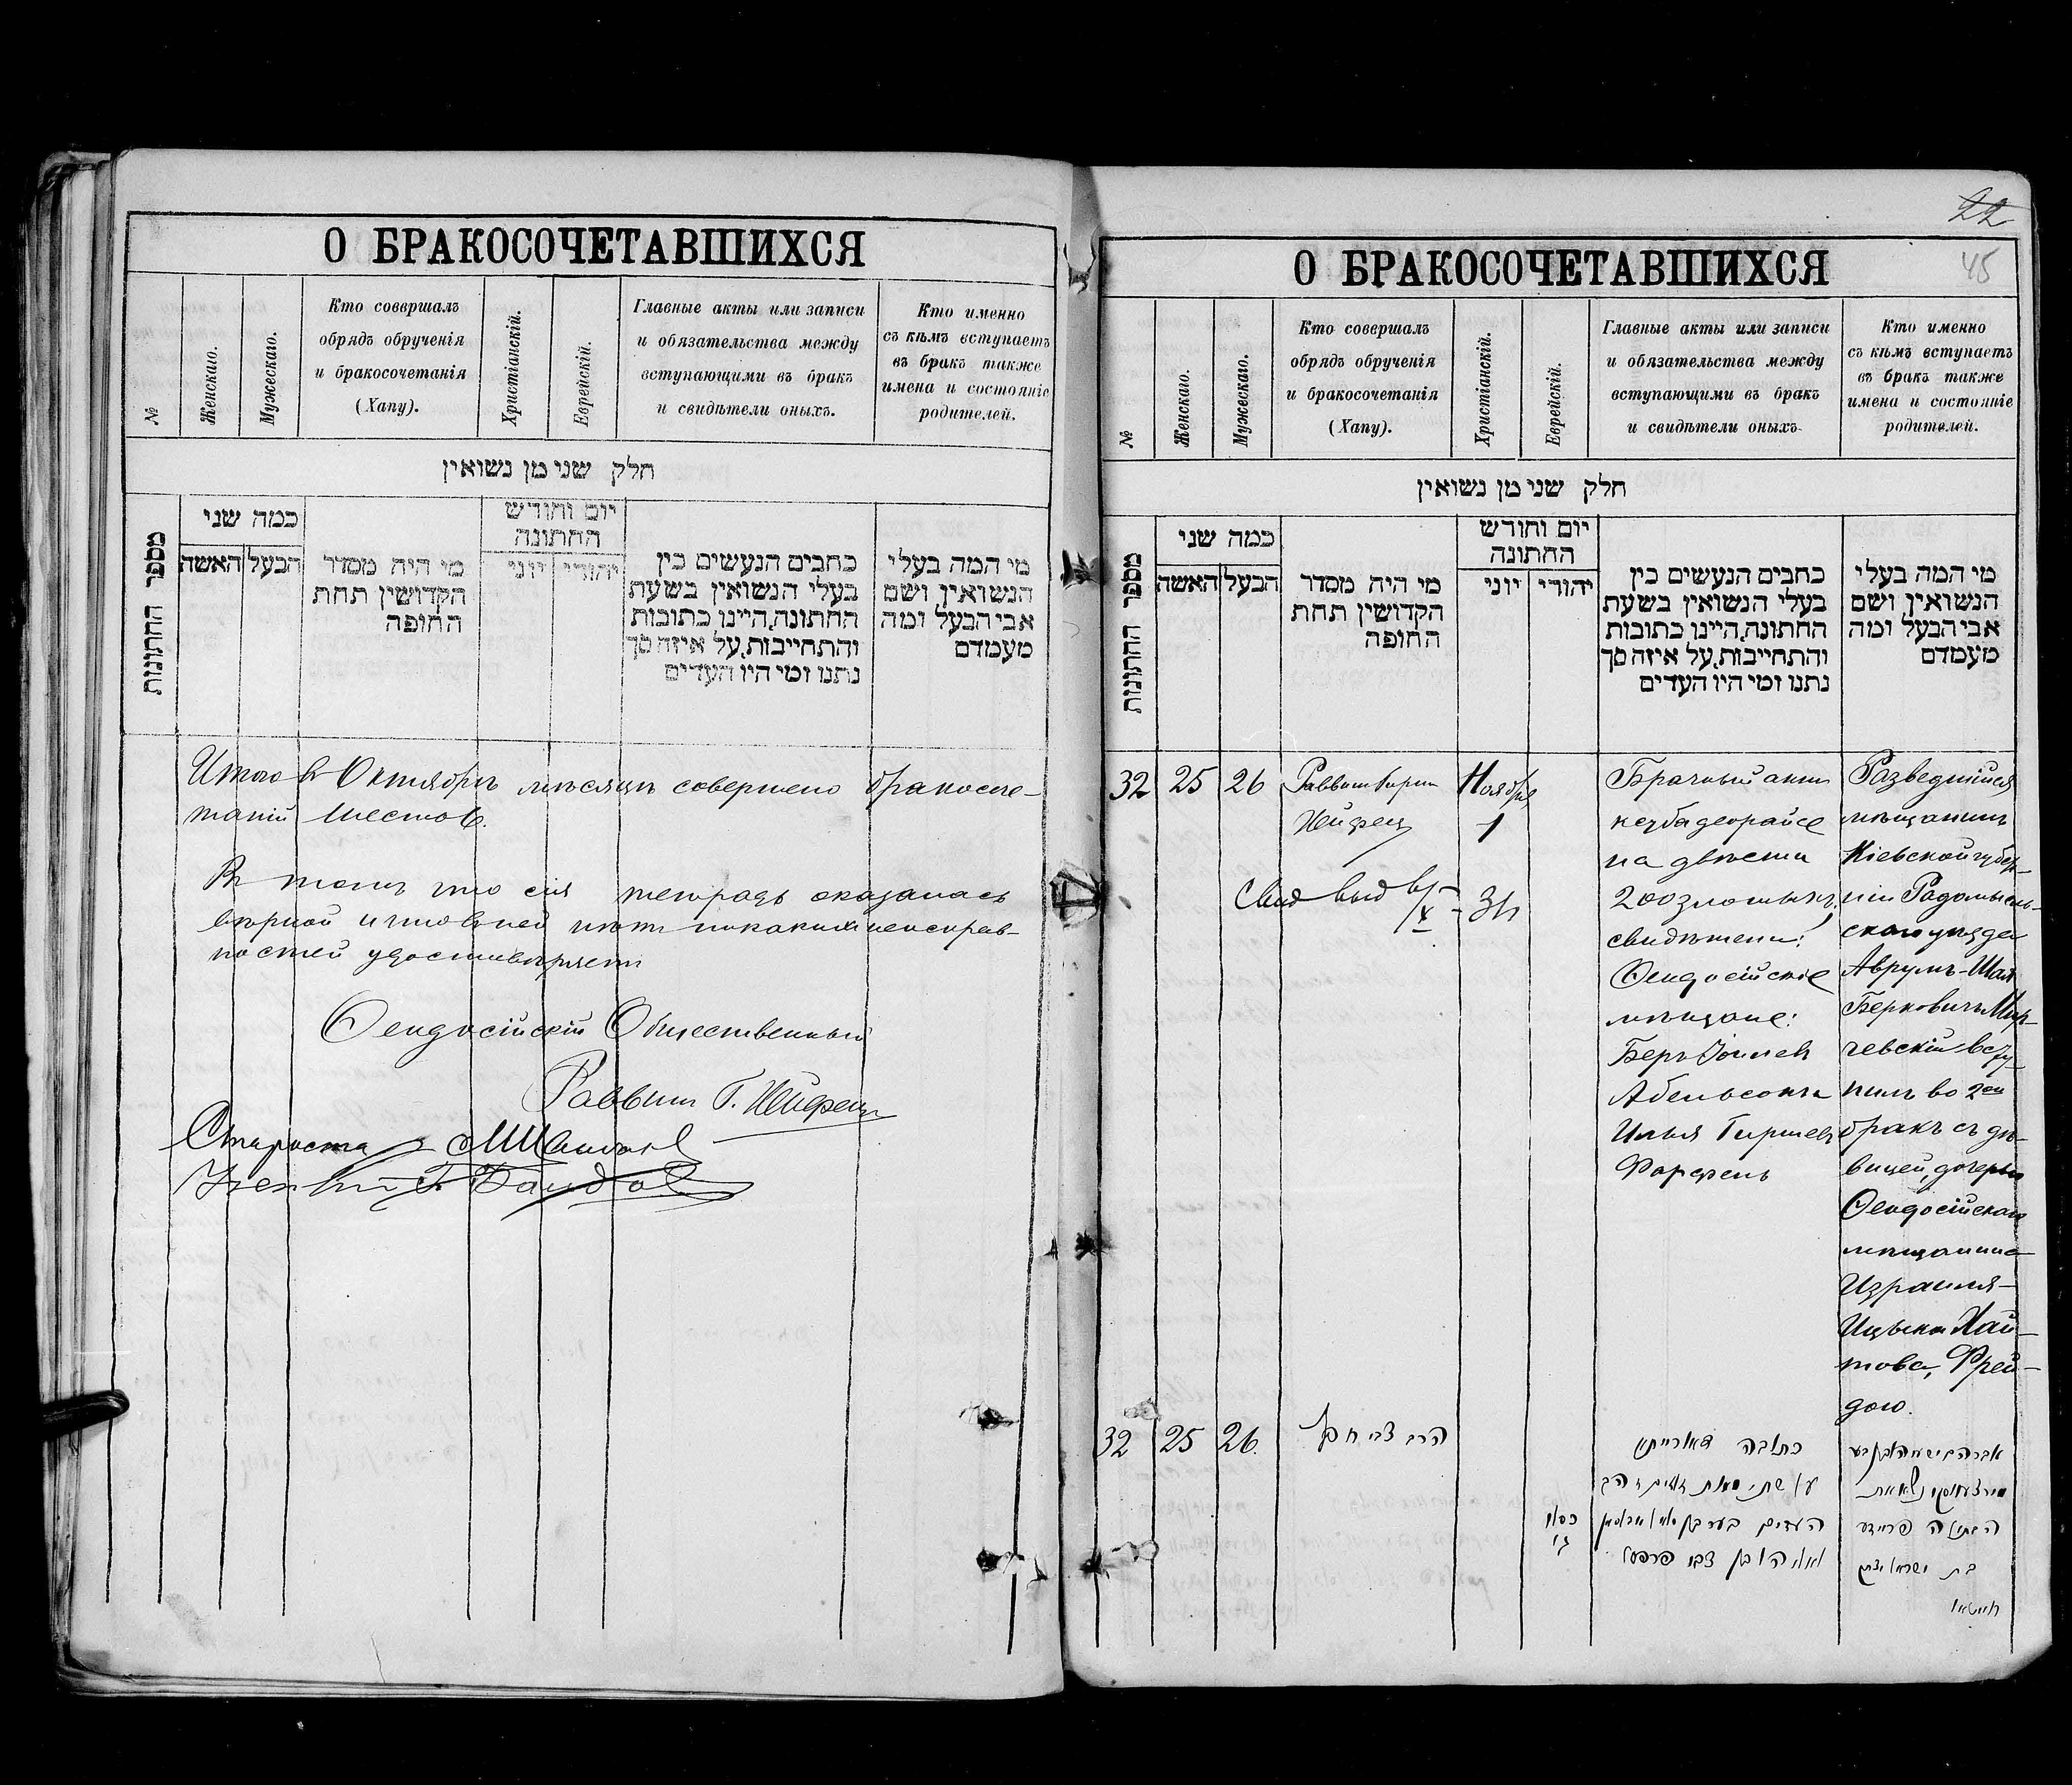 О БРАКОСОЧЕТАВШИХСЯ
№
Женскаго.
Мужескаго.
Кто совершалъ
обрядъ обрученія
и бракосочетанія
(Хапу).
Христіанскій.
Еврейскій.
Главные акты или записи
и обязательства между
вступающими въ бракъ
и свидѣтели оныхъ.
Кто именно
съ кѣмъ вступаетъ
въ бракъ также
имена и состояніе
родителей.
חלק שני מן נשואין
מספר החתונות
כמה שני
האשה
הבעל
מי היה מסדר
הקדושין תחת
החופה
יום וחודש
החתונה
יוני
יהודי
כתבים הנעשים בין
בעלי הנשואין בשעת
החתונה, היינו כתובות
והתחייבות, על איזה סך
נתנו ומי היו העדים
מי המה בעלי
הנשואין ושם
אבי הבעל ומה
מעמדם
Итого въ Октябрѣ мѣсяцѣ совершено бракосоче-
таній шесть 6.
Въ томъ что сія тетрадь оказалась
вѣрной и что въ ней нѣтъ никакихъ неисправ-
ностей удостовѣряетъ
Ѳеодосійскій Общественный
Раввинъ Г. Хейфецъ
Староста
22
45
О БРАКОСОЧЕТАВШИХСЯ
№
Женскаго.
Мужескаго.
Кто совершалъ
обрядъ обрученія
и бракосочетанія
(Хапу).
Христіанскій.
Еврейскій.
Главные акты или записи
и обязательства между
вступающими въ бракъ
и свидѣтели оныхъ
Кто именно
съ кѣмъ вступаетъ
въ бракъ также
имена и состояніе
родителей.
חלק שני מן נשואין
מספר החתונות
כמה שני
האשה
הבעל
מי היה מסדר
הקדושין תחת
החופה
יום וחודש
החתונה
יוני
יהודי
כתבים הנעשים בין
בעלי הנשואין בשעת
החתונה, היינו כתובות
והתחייבות, על איזה סך
נתנו ומי היו העדים
מי המה בעלי
הנשואין ושם
אבי הבעל ומה
מעמדם
32
25
26
Раввинъ
Хейфецъ
Ноября
1
Свид выд
Брачный актъ
кезубадеорайсе
на двѣсти
200 злотыхъ,
свидѣтели:
Ѳеодосійскіе
мѣщане:
Беръ Іоилевъ
Абельсонъ и
Илья Гиршевъ
Фарфель
Разведшійся
мѣщанинъ
Кіевской губер-
ніи Радомысль-
скаго уѣзда
Аврумъ-Шая
Берковичъ Мир-
чевскій всту-
пилъ во 2ой
бракъ съ дѣ-
вицей, дочерью
Ѳеодосійскаго
мѣщанина
Израиля-
Ицька Хай-
това, Фрей-
дою.
32
25
26.
הרב צבי חפץ
כתובה דאורייתא
העדים
אליהו בן צבי פרפעל
הבתולה פריידע
בת ישראל יצחק